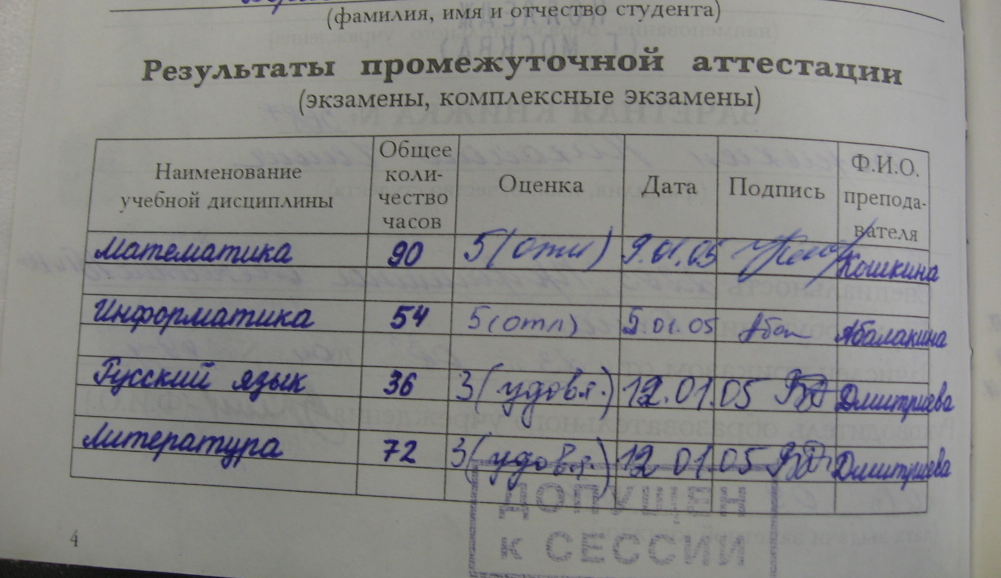 (фамилия, имя и отчество студента)
Результаты промежуточной аттестации
(экзамены, комплексные экзамены)
Наименование учебной дисциплины Общее коли-чество часов Оценка Дата Подпись Ф.И.О. препода-вателя
Математика 90 5 (отл) 9.01.05 Кошкина
Информатика 54 5 (отл) 5.01.05 Абалакина
Русский язык 36 3 (удовл.) 12.01.05 Дмитриева
Литература 72 3 (удовл.) 12 01.05 Дмитриева
ДОПУЩЕН
К СЕССИИ
4